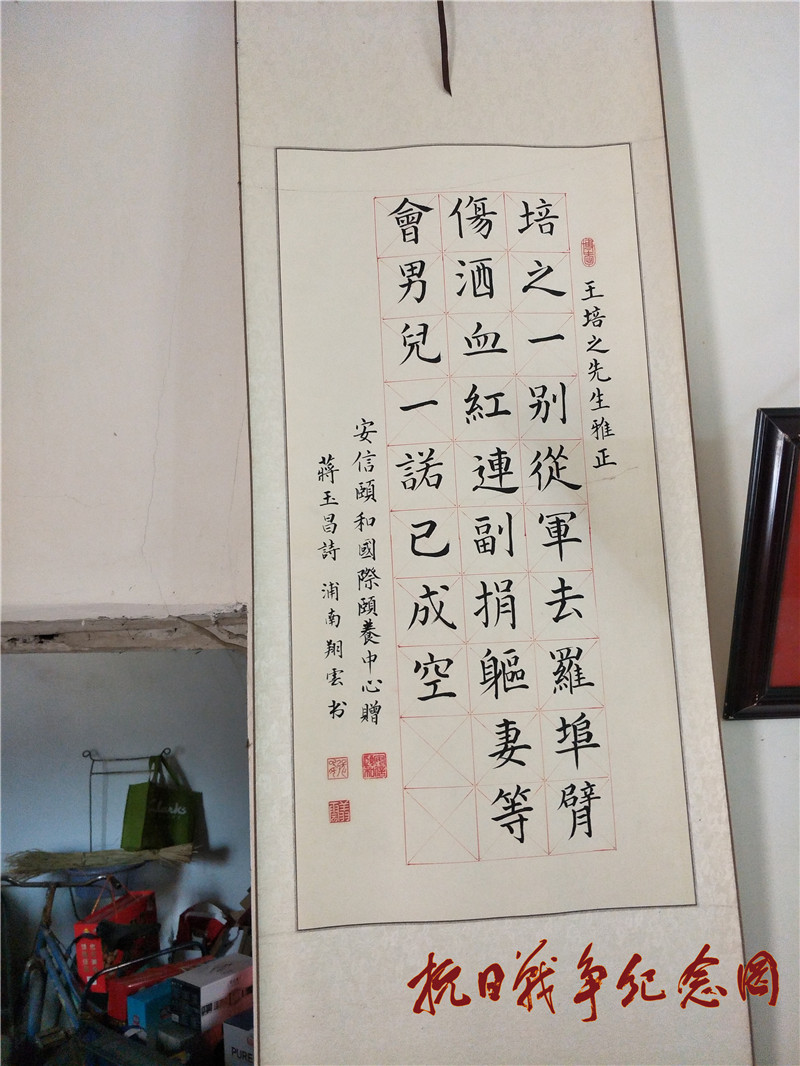 王培之先生雅正
培之一别從軍去羅埠臂
傷洒血紅連副捐軀妻等
會男兒一諾已成空
安信頤和國際頤養中心贈
蔣玉昌詩 浦南翔雲书
Clarks
PURE
抗日战争纪念网